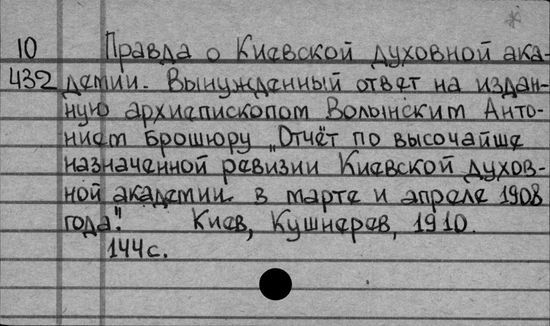 10 Правда о Киевской духовной ака-
432 демии. Вынужденный ответ на издан-
ную архиепископом Волынским Анто-
нием брошюру „Отчёт по высочайше
назначенной ревизии Киевской духов-
ной академии в марте и апреле 1908
года". Киев, Кушнерев, 1910.
144 с.